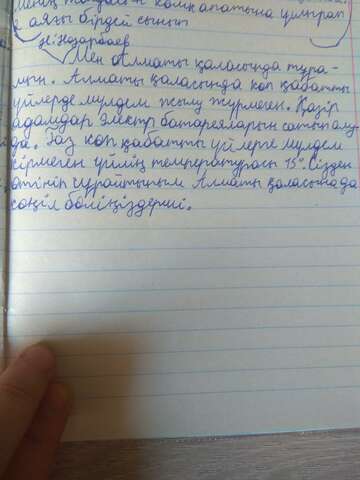 менің
компанатына
ә аяғы бірдей сынып
Н.Назарбаев
Мен Алматы қаласында тұра-
мын. Алматы қаласында көп қабатты
үйлерде мүлдем жылу жүрмеген. Қазір
адамдар электр батареяларын сатып алу-
да. Газ көп қабатты үйлерге мүлдем
кірмеген үйдің температурасы 15°. Сізден
өтініп сұрайтыным Алматы қаласынада
көңіл бөліңіздерші.